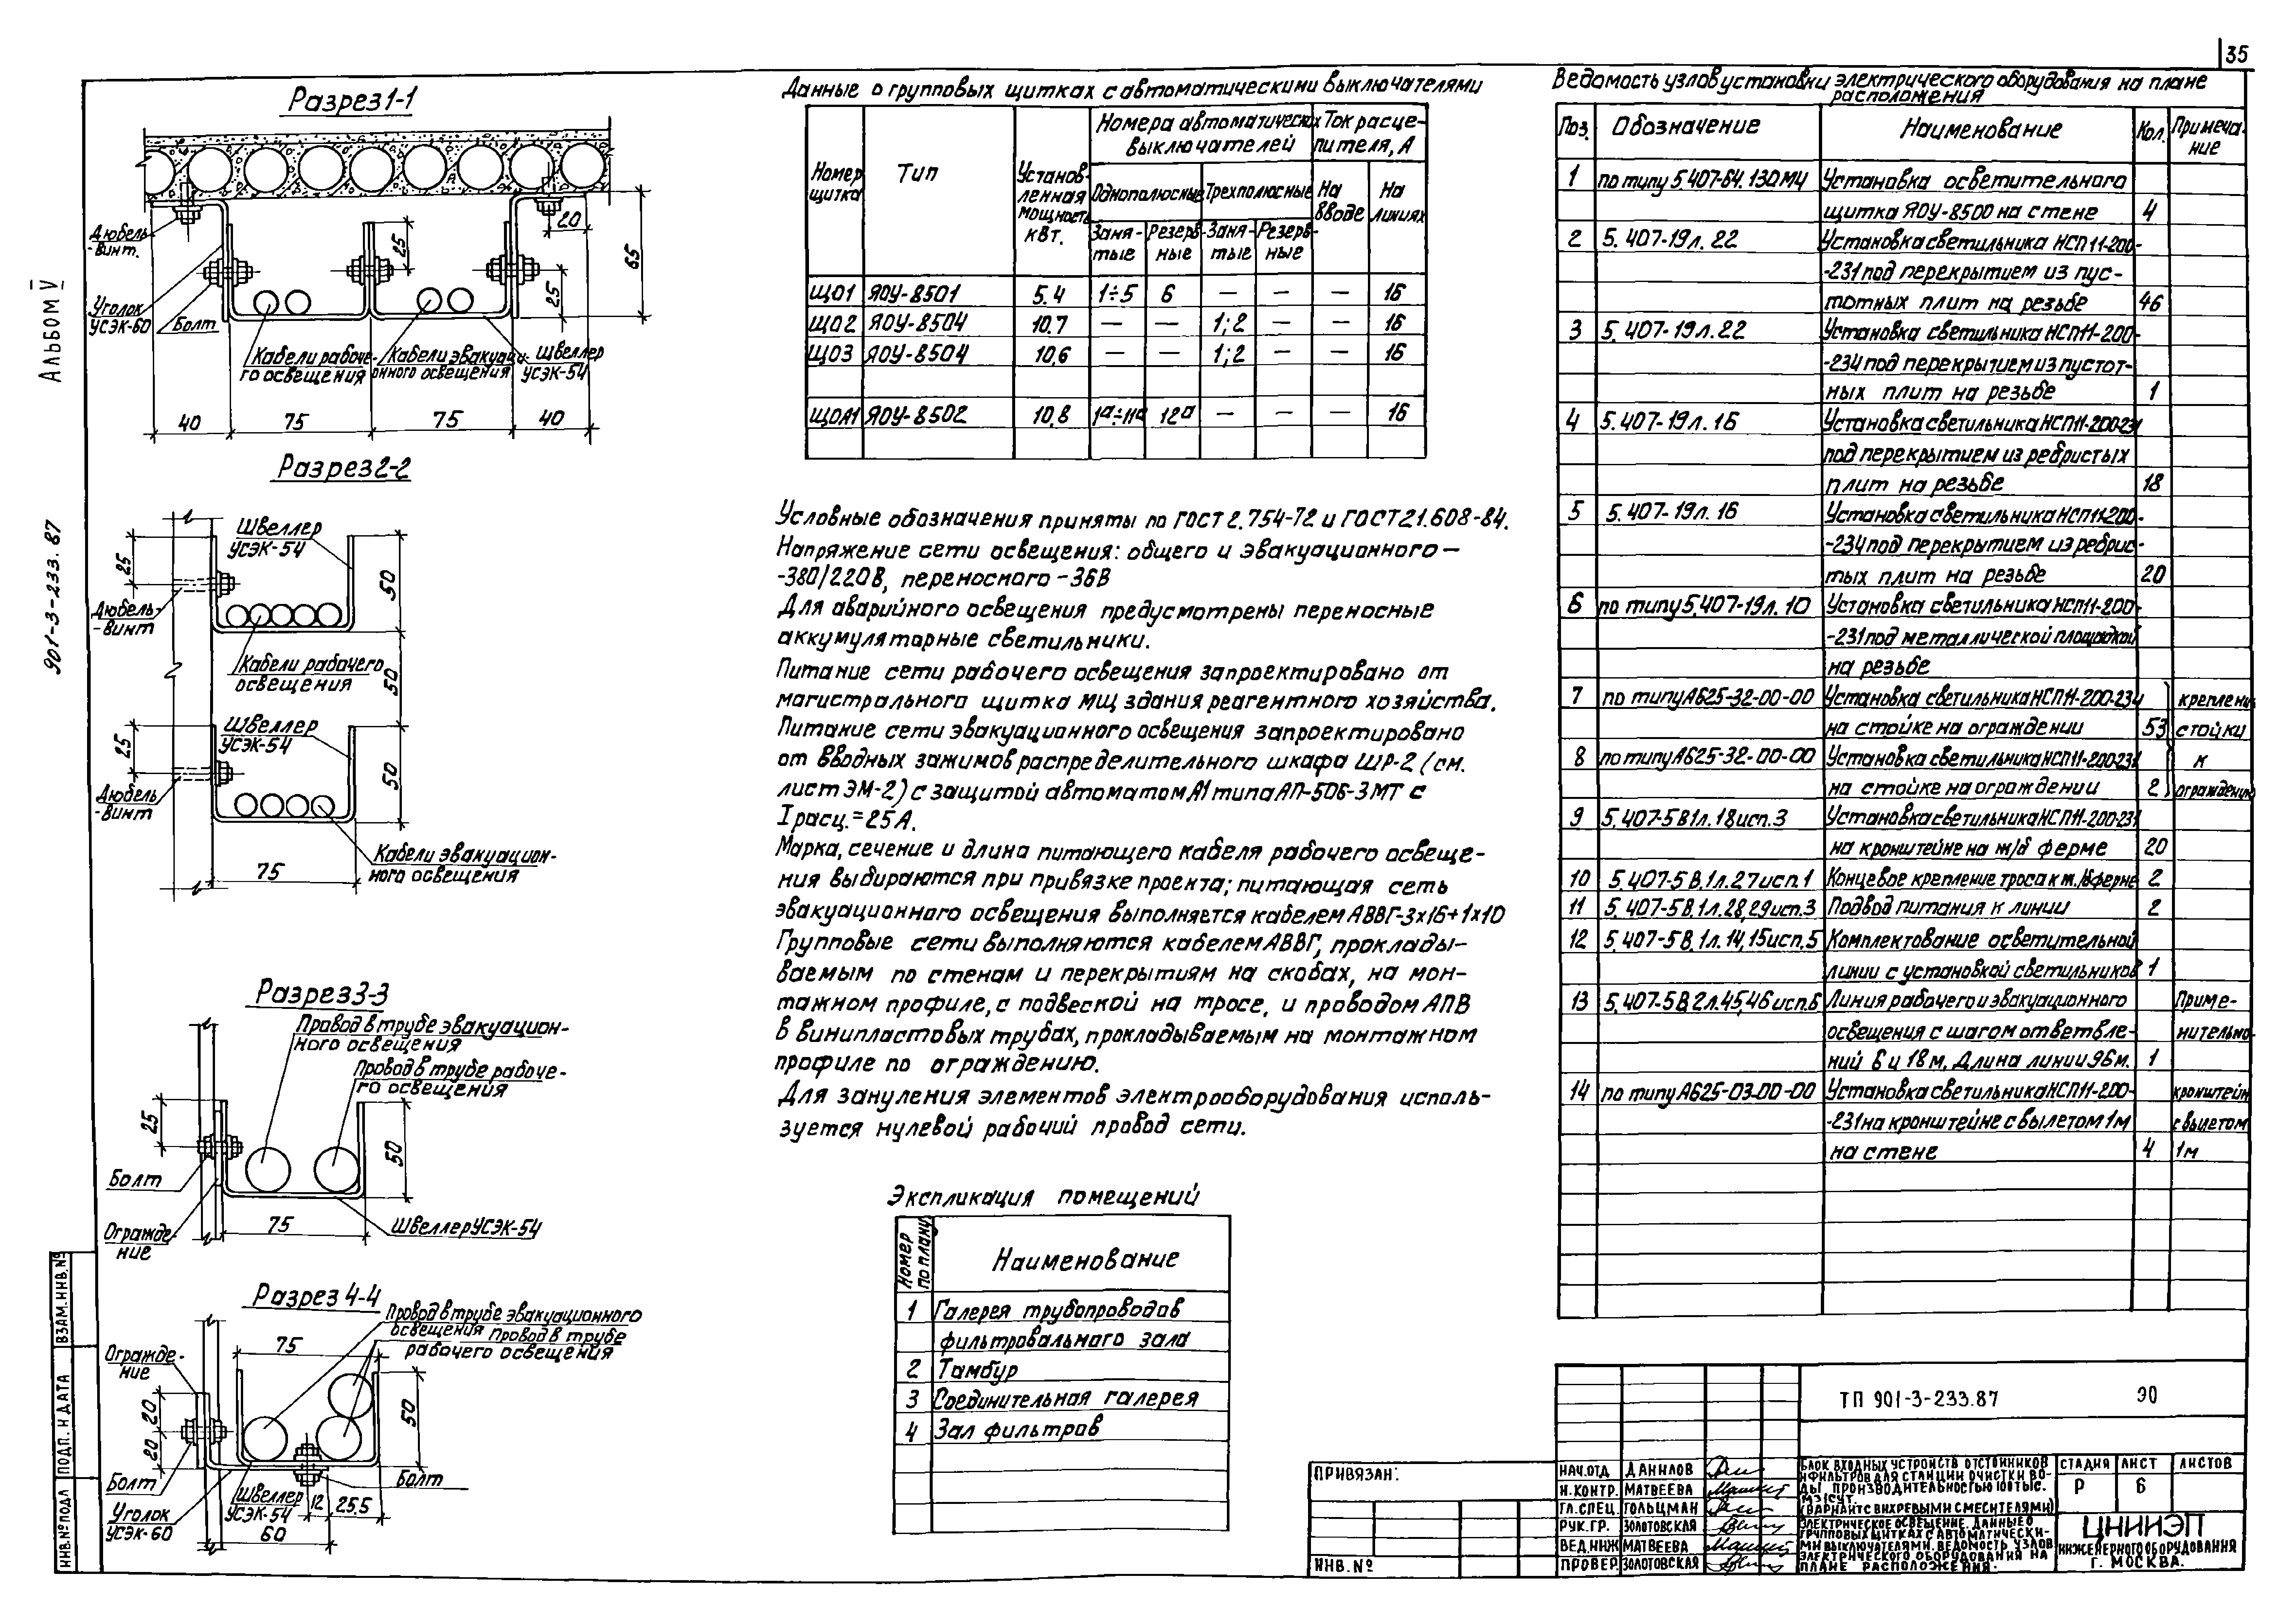 35
АЛЬБОМ V
901-3-233.87
Разрез 1-1
Дюбель-
-винт.
Уголок
УСЭК-60
Болт
Кабели рабоче-
го освещения
Кабели эвакуаци-
онного освещения
Швеллер
УСЭК-54
25
20
25
65
40
75
75
40
Разрез 2-2
Швеллер
УСЭК-54
25
50
Дюбель-
-винт
Кабели рабочего
освещения
50
Швеллер
УСЭК-54
25
50
Дюбель
-винт
75
Кабели эвакуацион-
ного освещения
Разрез 3-3
Провод в трубе эвакуацион-
ного освещения
Провод в трубе рабоче-
го освещения
25
50
Болт
75
Швеллер УСЭК-54
Огражде-
ние
Разрез 4-4
Провод в трубе эвакуационного
освещения
Провод в трубе
рабочего освещения
75
Огражде-
ние
20
20
50
Болт
Болт
Швеллер
УСЭК-54
12
25,5
Уголок
УСЭК-60
60
Данные о групповых щитках с автоматическими выключателями
Номер
щитка
Тип
Установ-
ленная
мощность
кВт.
Номера автоматических
выключателей
Ток расце-
пителя, А
Однополюсные
Трехполюсные
На
вводе
На
линиях
Заня-
тые
Резерв-
ные
Заня-
тые
Резерв-
ные
ЩО1 ЯОУ-8501 5.4 1÷5 6 — — — 16
ЩО2 ЯОУ-8504 10,7 — — 1;2 — — 16
ЩО3 ЯОУ-8504 10,6 — — 1;2 — — 16
ЩОА1 ЯОУ-8502 10,8 1а÷11а 12а — — — 16
Условные обозначения приняты по ГОСТ 2.754-72 и ГОСТ 21.608-84.
Напряжение сети освещения: общего и эвакуационного —
-380/220В, переносного - 36В
Для аварийного освещения предусмотрены переносные
аккумуляторные светильники.
Питание сети рабочего освещения запроектировано от
магистрального щитка МЩ здания реагентного хозяйства.
Питание сети эвакуационного освещения запроектировано
от вводных зажимов распределительного шкафа ШР-2 (см.
лист ЭМ-2) с защитой автоматом А1 типа АП-50Б-3МТ с
Iрасц.=25А.
Марка, сечение и длина питающего кабеля рабочего освеще-
ния выбираются при привязке проекта; питающая сеть
эвакуационного освещения выполняется кабелем АВВГ-3х16+1х10
Групповые сети выполняются кабелем АВВГ, проклады-
ваемым по стенам и перекрытиям на скобах, на мон-
тажном профиле, с подвеской на тросе, и проводом АПВ
в винипластовых трубах, прокладываемым на монтажном
профиле по ограждению.
Для зануления элементов электрооборудования исполь-
зуется нулевой рабочий провод сети.
Экспликация помещений
Номер
по плану
Наименование
1 Галерея трубопроводов
фильтровального зала
2 Тамбур
3 Соединительная галерея
4 Зал фильтров
Ведомость узлов установки электрического оборудования на плане
расположения
Поз. Обозначение Наименование Кол. Примеча-
ние
1 по типу 5.407-64.130МЧ Установка осветительного
щитка ЯОУ-8500 на стене 4
2 5.407-19л.22 Установка светильника НСП11-200-
-231 под перекрытием из пус-
тотных плит на резьбе 46
3 5.407-19л.22 Установка светильника НСП11-200-
-234 под перекрытием из пустот-
ных плит на резьбе 1
4 5.407-19л.16 Установка светильника НСП11-200-231
под перекрытием из ребристых
плит на резьбе 18
5 5.407-19л.16 Установка светильника НСП11-200-
-234 под перекрытием из ребрис-
тых плит на резьбе 20
6 по типу 5.407-19л.10 Установка светильника НСП11-200-
-231 под металлической площадкой
на резьбе
7 по типу А625-32-00-00 Установка светильника НСП11-200-234 крепление
на стойке на ограждении 53 стойки
8 по типу А625-32-00-00 Установка светильника НСП11-200-231 к
на стойке на ограждении 2 ограждению
9 5.407-5В1л.18исп.3 Установка светильника НСП11-200-231
на кронштейне на ж/б ферме 20
10 5.407-5В.1л.27исп.1 Концевое крепление троса к ж./б ферме 2
11 5.407-5В.1л.28,29исп.3 Подвод питания к линии 2
12 5.407-5В.1л.14,15исп.5 Комплектование осветительной
линии с установкой светильников 1
13 5.407-5В2л.45,46исп.6 Линия рабочего и эвакуационного Приме-
освещения с шагом ответвле- нительно
ний 6 и 18м. Длина линии 96м. 1
14 по типу А625-03-00-00 Установка светильника НСП11-200- кронштейн
-231 на кронштейне с вылетом 1м с вылетом
на стене 4 1м
ТП 901-3-233.87 ЭО
НАЧ.ОТД ДАНИЛОВ
Н.КОНТР. МАТВЕЕВА
ГЛ.СПЕЦ. ГОЛЬЦМАН
РУК.ГР. ЗОЛОТОВСКАЯ
ВЕД.ИНЖ МАТВЕЕВА
ПРОВЕР. ЗОЛОТОВСКАЯ
БЛОК ВХОДНЫХ УСТРОЙСТВ ОТСТОЙНИКОВ
И ФИЛЬТРОВ ДЛЯ СТАНЦИИ ОЧИСТКИ ВО-
ДЫ ПРОИЗВОДИТЕЛЬНОСТЬЮ 100 ТЫС.
М3/СУТ.
(ВАРИАНТ С ВИХРЕВЫМИ СМЕСИТЕЛЯМИ)
ЭЛЕКТРИЧЕСКОЕ ОСВЕЩЕНИЕ. ДАННЫЕ О
ГРУППОВЫХ ЩИТКАХ С АВТОМАТИЧЕСКИ-
МИ ВЫКЛЮЧАТЕЛЯМИ. ВЕДОМОСТЬ УЗЛОВ
ЭЛЕКТРИЧЕСКОГО ОБОРУДОВАНИЯ НА
ПЛАНЕ РАСПОЛОЖЕНИЯ.
СТАДИЯ ЛИСТ ЛИСТОВ
Р 6
ЦНИИЭП
ИНЖЕНЕРНОГО ОБОРУДОВАНИЯ
Г. МОСКВА.
ПРИВЯЗАН:
ИНВ.№
ВЗАМ.ИНВ.№
ПОДП. И ДАТА
ИНВ.№ ПОДЛ